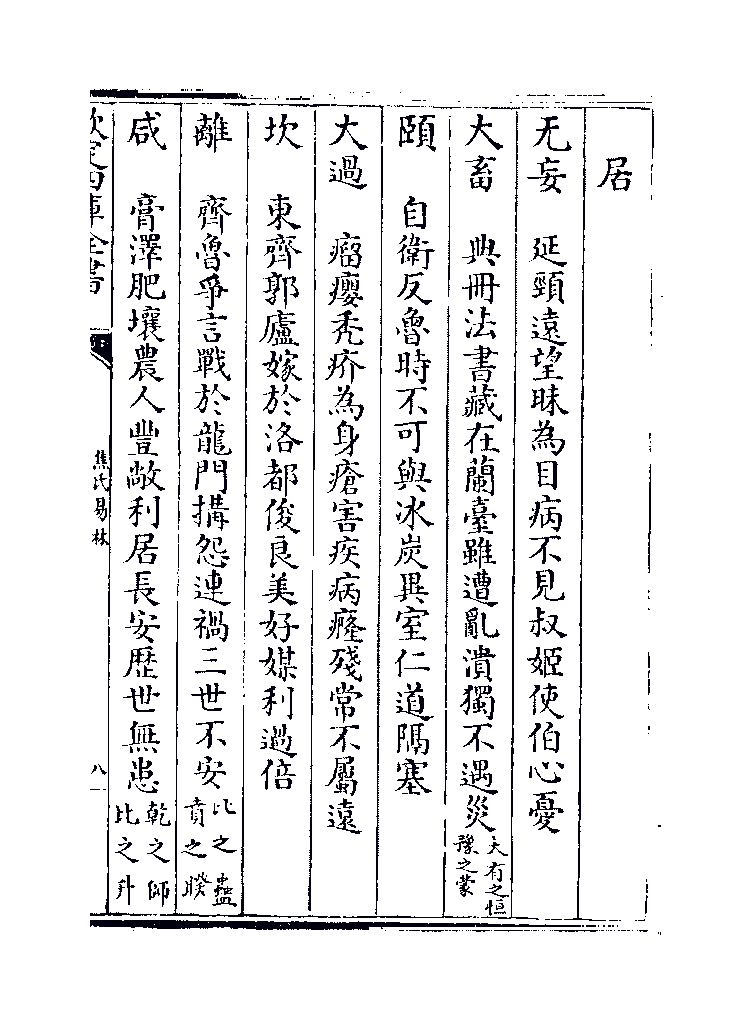 居
无妄　延頸遠望昧為目病不見叔姬使伯心憂
大畜　典冊法書藏在蘭臺雖遭亂潰獨不遇災大有之恒豫之蒙
頤　自衛反魯時不可與冰炭異室仁道隔塞
大過　瘤癭禿疥為身瘡害疾病癃殘常不屬遠
坎　東齊郭廬嫁於洛都俊良美好媒利過倍
離　齊魯爭言戰於龍門搆怨連禍三世不安比之蠱賁之睽
咸　膏澤肥壤農人豐敞利居長安歷世無患乾之師比之升
欽定四庫全書
焦氏易林
八